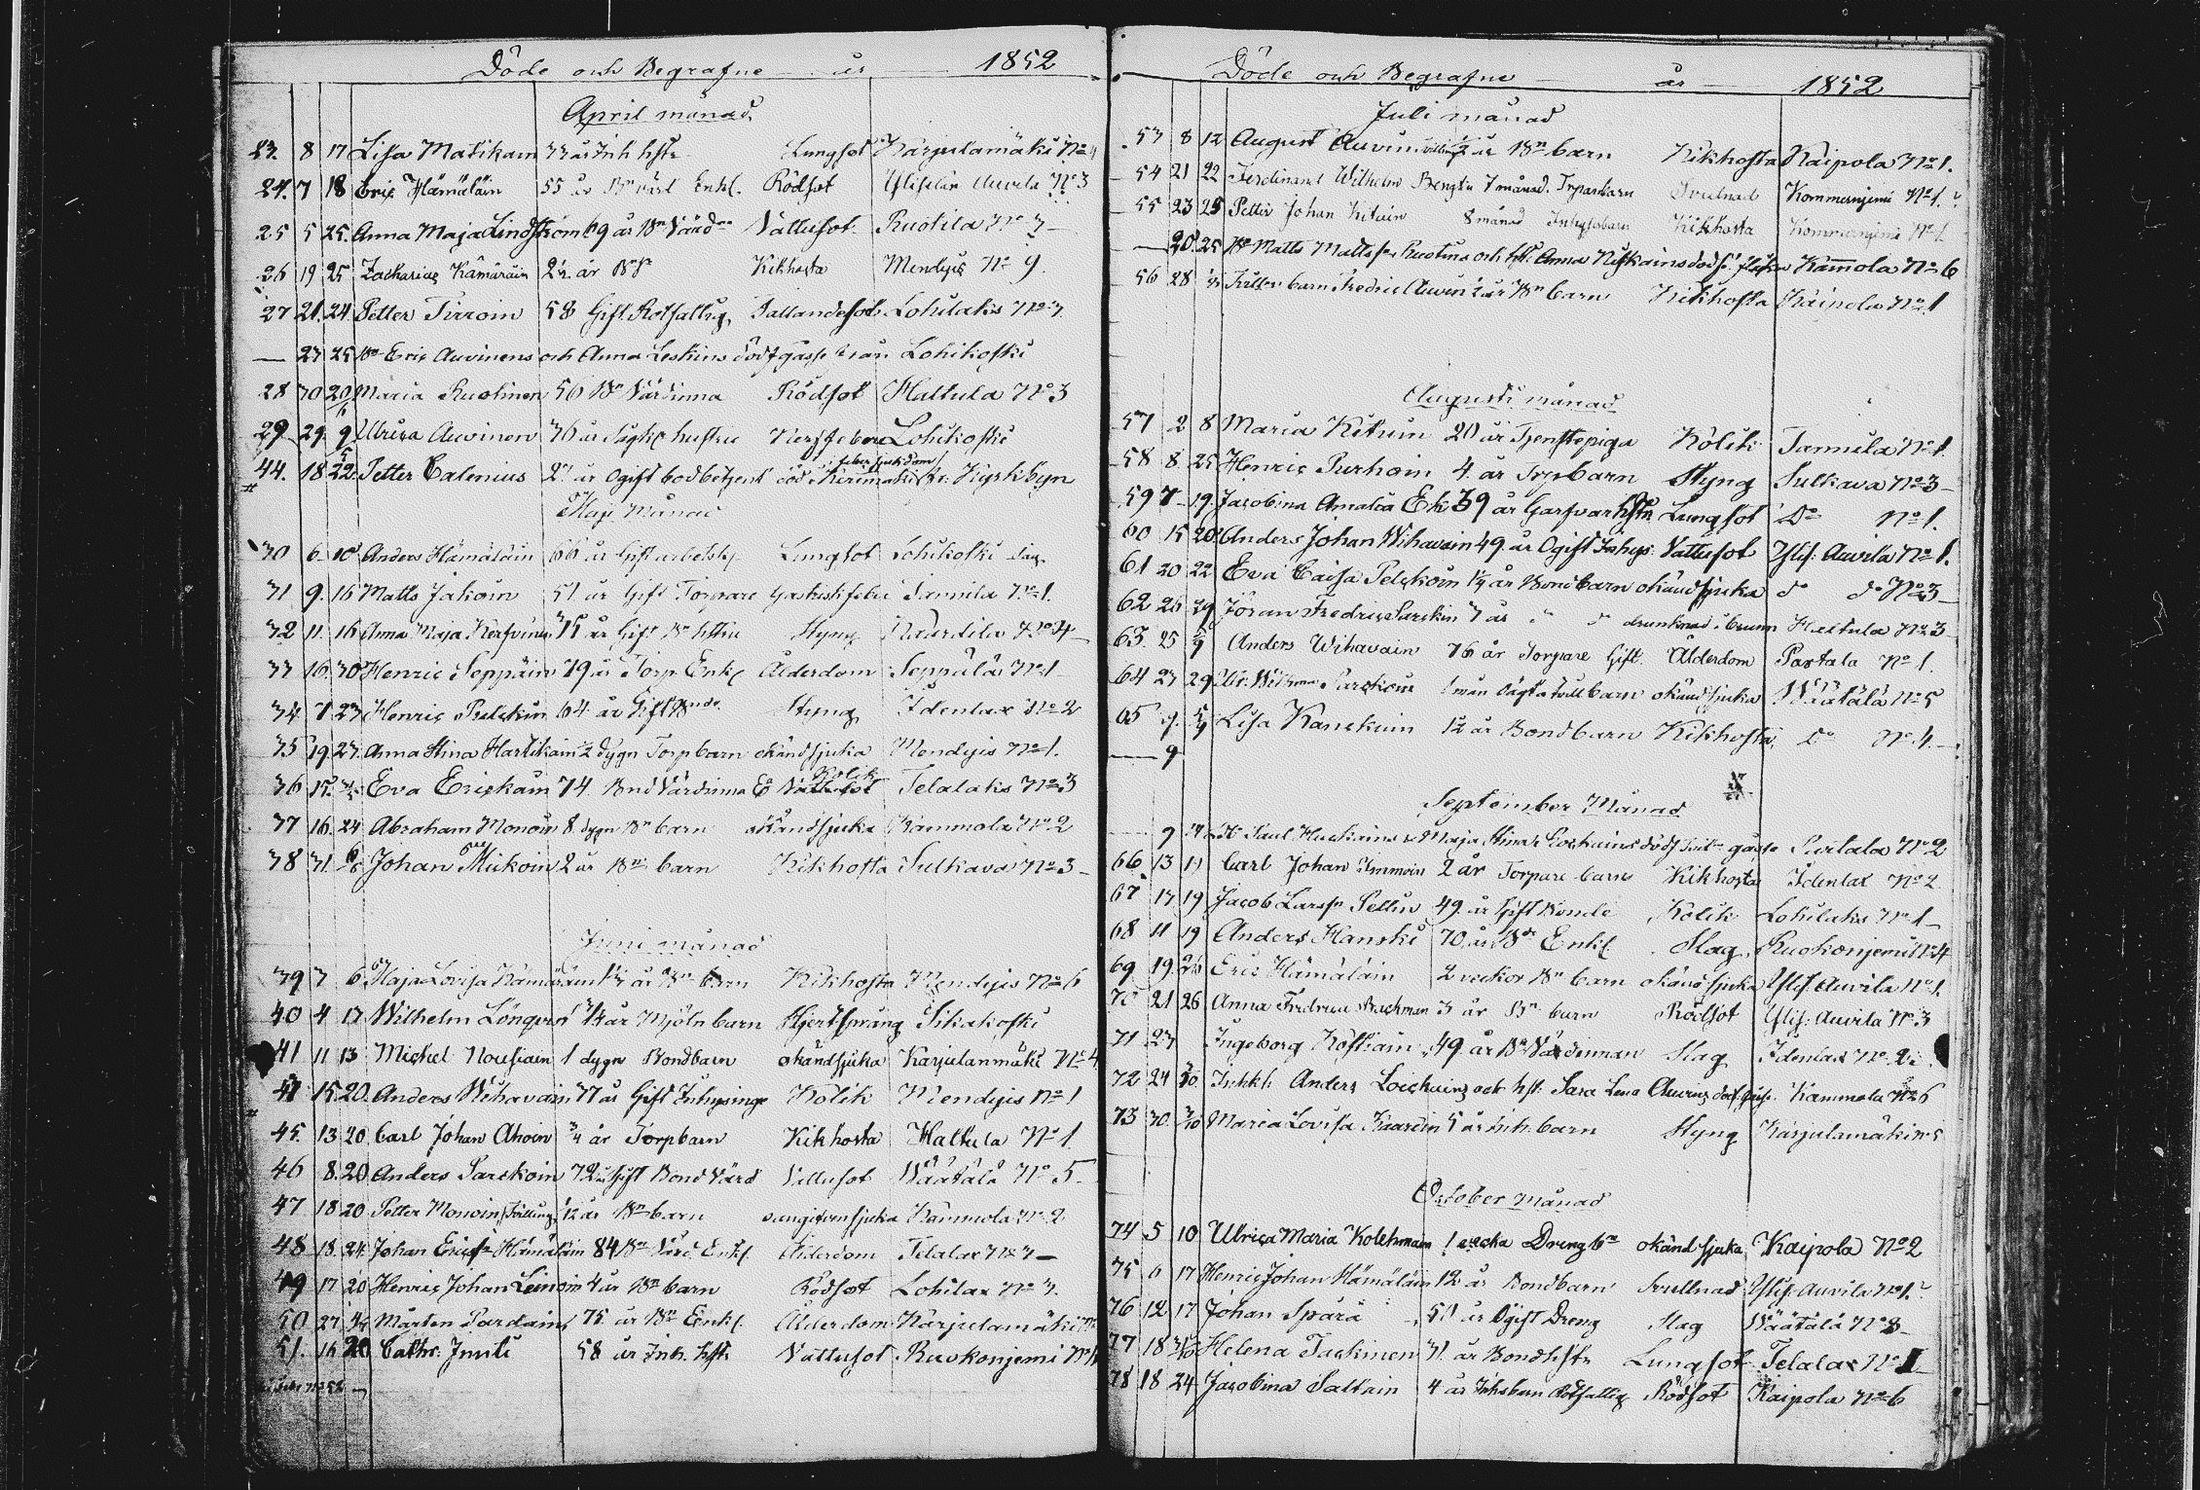 Döde och Begrafne år 1852
April månad
23. 8 17 Lisa Matikain 33 år Inh hstr Lungsot Karjulamäki No 4
24. 7 18 Eric Hämäläin 55 år Bn värd Enkl. Rödsot Ylis: Auvila No 3
25 5 25. Anna Maja Lindström 69 år Bn Värd Vattusot Ruotila No 3
26 19 25 Zacharias Kämäräin 2½ år Kikhosta Mendyis No 9
27 21. 24 Petter Tirroin 58 Gift Rotfattig Fallandesot Lohilaks No 3
— 23 25 Eric Auvinens och Anna Leskins dödf gosse från Lohikoski
28 30 20/6 Maria Ruotinen 50 Bn Värdinna Rödsot Hattula No 3
29 29 9/5 Ulrica Auvinen 36 år hustru Nerffeber Lohikoski
44. 18 22 Petter Calenius 2? år Ogift bodbetjent död i Kerimäki Kyrkbyn
Maji Månad
30 6 10 Anders Hämäläin 66 år Gift arbetsk Lungsot Lohikoski såg
31 9. 16 Matts Jakoin 51 år Gift Torpare Gastrisk feber Tamila No 1.
32 11. 16 Anna Maja Kerfvinen 35 år Gift Bn hstru Styng Kaartila No 4
33 16 30 Henric Seppäin 79 år Torp Enkl Ålderdom Seppälä No 1
34 7 23 Henric Pelckin 64 år Gift Bnde Styng Idenlax No 2
35 19 27. Anna Stina Hartikain 2 dygn Torpbarn okänd sjuka Mendyis No 1.
36 15 Eva Erickain 74. Bnd Värdinna E Kolik Telalaks No 3
37 16. 24 Abraham Monoin 8 dygn Bn barn okänd sjuka Kammola No 2
38 31. 6/6 Johan Mickoin 2 år Bn barn Kikhosta Sulkava No 3
Juni månad
39 3 6 Maja Lovisa Kämäräin Bn barn Kikhosta Mendyis No 6
40 4 13 Wilhelm Löngren ¾ år Mjöln barn Hjertsprång Sikakoski
41 11 13 Michel Nousiain 1 dygn Bondbarn okänd sjuka Karjulanmäki No 4
41 15 20. Anders Wihavain 37 år Gift Inhysinge Kolik Mendyis No 1
45. 13 20 Carl Johan Ahoin ¾ år Torpbarn Kikhosta Hattula No 1
46 8. 20 Anders Parckoin 72 år Gift Bond Värd Vattusot Väätälä No 5
47 18 20 Petter Monoin, Tvilling ½ år Bn barn okänd sjuka Kammola No 2
48 18. 24. Johan Ericsn Hämäläin 84 Bn Värd Enkl Ålderdom Telalax No 3
49 17 20 Henric Johan Leinoin 4 år Bn barn Rödsot Lohilax No 3.
50 27 4/7 Mårten Pardain 75 år Bn Enkl. Ålderdom Karjulamäki
51. 16 20 Cathr: Juuti 58 år Inh. hstr Vattusot Ruokonjemi
Döde och Begrafne år 1852
Juli månad
53 8 12 August Auvin tvilling ½ år Bn barn Kikhosta Kaipola No 1.
54 21 22 Ferdinand Wilhelm Bengtn 7 månad. Trparbarn Svulnad Kommernjemi No 1.
55 23 25 Petter Johan Kituin 8 månad Inhysbarn Kikhosta Kommernjemi No 1
— 20 25 Bn Matts Mattsson Ruotins och hst: Anna Nijkains dödf. flicka Kammola No 6
56 28 Tvillinbarn Fredric Auvin ½ år Bn barn Kikhosta Kaipola No 1
Augusti månad
57 2 8 Maria Kituin 20 år Tjenstepiga Kolik Tamila No 1.
58 8 25 Henric Purhoin 4. år Torpbarn Styng Sulkava No 3
59 7 19. Jacobina Amalia Ek 39 år Garfvarhstr Lungsot Do No 1.
60 15 20 Anders Johan Wihavain 49. år Ogift Inhys: Vattusot Ylis: Auvila No 1.
61 20 22 Eva Caisa Pelckoin ¼ år Bondbarn okänd sjuka do do No 3
62 26 29 Jöran Fredric Parckin 7 år " " drunknad i brunn Hattula No 3
63. 25 5/9 Anders Wihavain 76 år Torpare Gift. Ålderdom Partala No 1.
64 23 29 Ulr: Wilhma Parckoin 1 mån tvillbarn okänd sjuka Väätälä No 5
65 5/9 Lisa Kanckuin 1½ år Bondbarn Kikhosta Do No 4.
— 9
September Månad
— 9 Paul Huckains & Maja Stina Loickains dödf gosse Partala No 2
66 13 19 Carl Johan Immoin 2 år Torpare barn Kikhosta Idenlax No 2.
67 17 19 Jacob Larsn Pellin 49 år Gift Bonde Kolik Lohilaks No 1
68 11 19 Anders Hanski 70 år Bn Enkl. Slag Ruokonjemi No 4
69 19. 26 Eric Hämäläin 2 veckor Bn barn okänd sjuka Ylis. Auvila No 1.
70 21 26 Anna Fredrica Backman 3 år Bn barn Rödsot Ylis: Auvila No 3
71 23 Ingeborg Kostiain 49. år Bn Värdinnan Slag Idenlax No 2
72 24 Inhh Anders Loickains och hst: Sara Lena Auvins dödf. gosse Kammola No 6
73 30. 3/10 Maria Lovisa Kaardin 5 år Inh: barn Styng Karjulamäki No 5
October månad
74 5 10 Ulrica Maria Kolehmain 1 vecka Dreng bn okänd sjuka Kaipola No 2
75 6 17 Henric Johan Hämäläin 12 år Bondbarn Svullnad Ylis: Auvila No 1.
76 12 17 Johan Spårå 50 år Ogift Dreng Slag Väätälä No 8
77 18 Helena Tuckinen 31 år Bondhstr Lungsot Telalax No 1
78 18 24 Jacobina Saltain 4 år Inhsbarn Rotfattig Rödsot Kaipola No 6